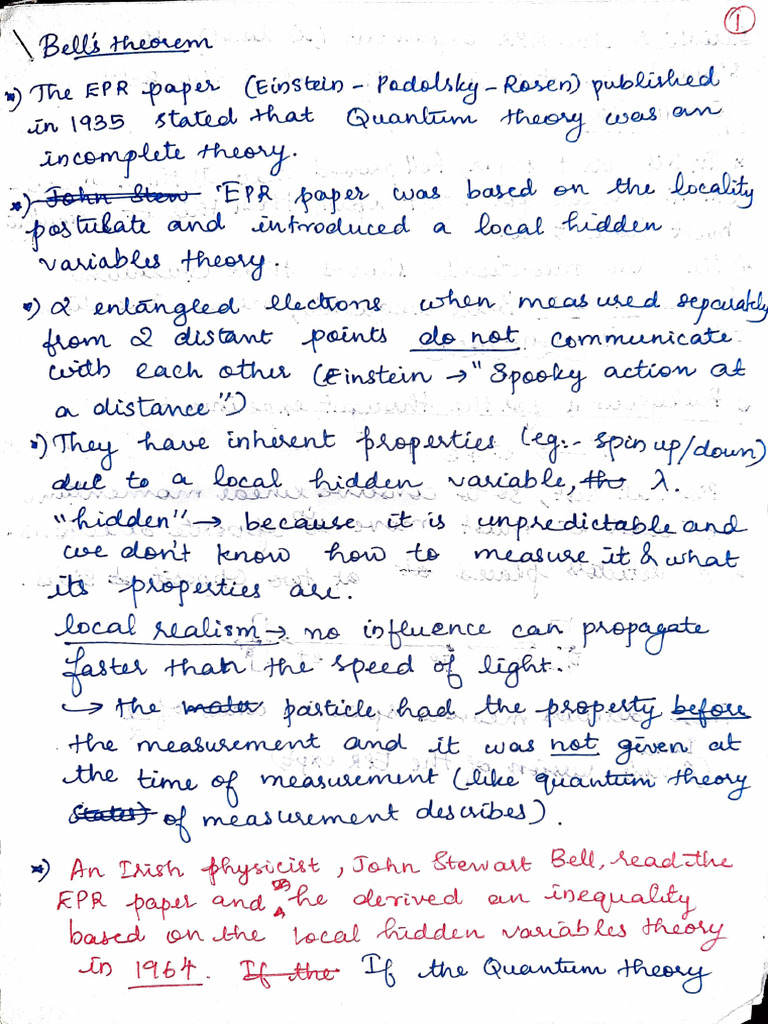 1
Bell's theorem
*) The EPR paper (Einstein - Podolsky - Rosen) published
in 1935 stated that Quantum theory was an
incomplete theory.
*) John Stew EPR paper was based on the locality
postulate and introduced a local hidden
variables theory.
*) 2 entangled electrons when measured separately
from 2 distant points do not communicate
with each other (Einstein → "Spooky action at
a distance")
*) They have inherent properties (eg:- spin up/down)
due to a local hidden variable, th λ.
"hidden" → because it is unpredictable and
we don't know how to measure it & what
its properties are.
local realism → no influence can propagate
faster than the speed of light.
↳ the particle had the property before
the measurement and it was not given at
the time of measurement (like quantum theory
states) of measurement describes).
*) An Irish physicist, John Stewart Bell, read the
EPR paper and he derived an inequality
based on the local hidden variables theory
in 1964. If the If the Quantum theory